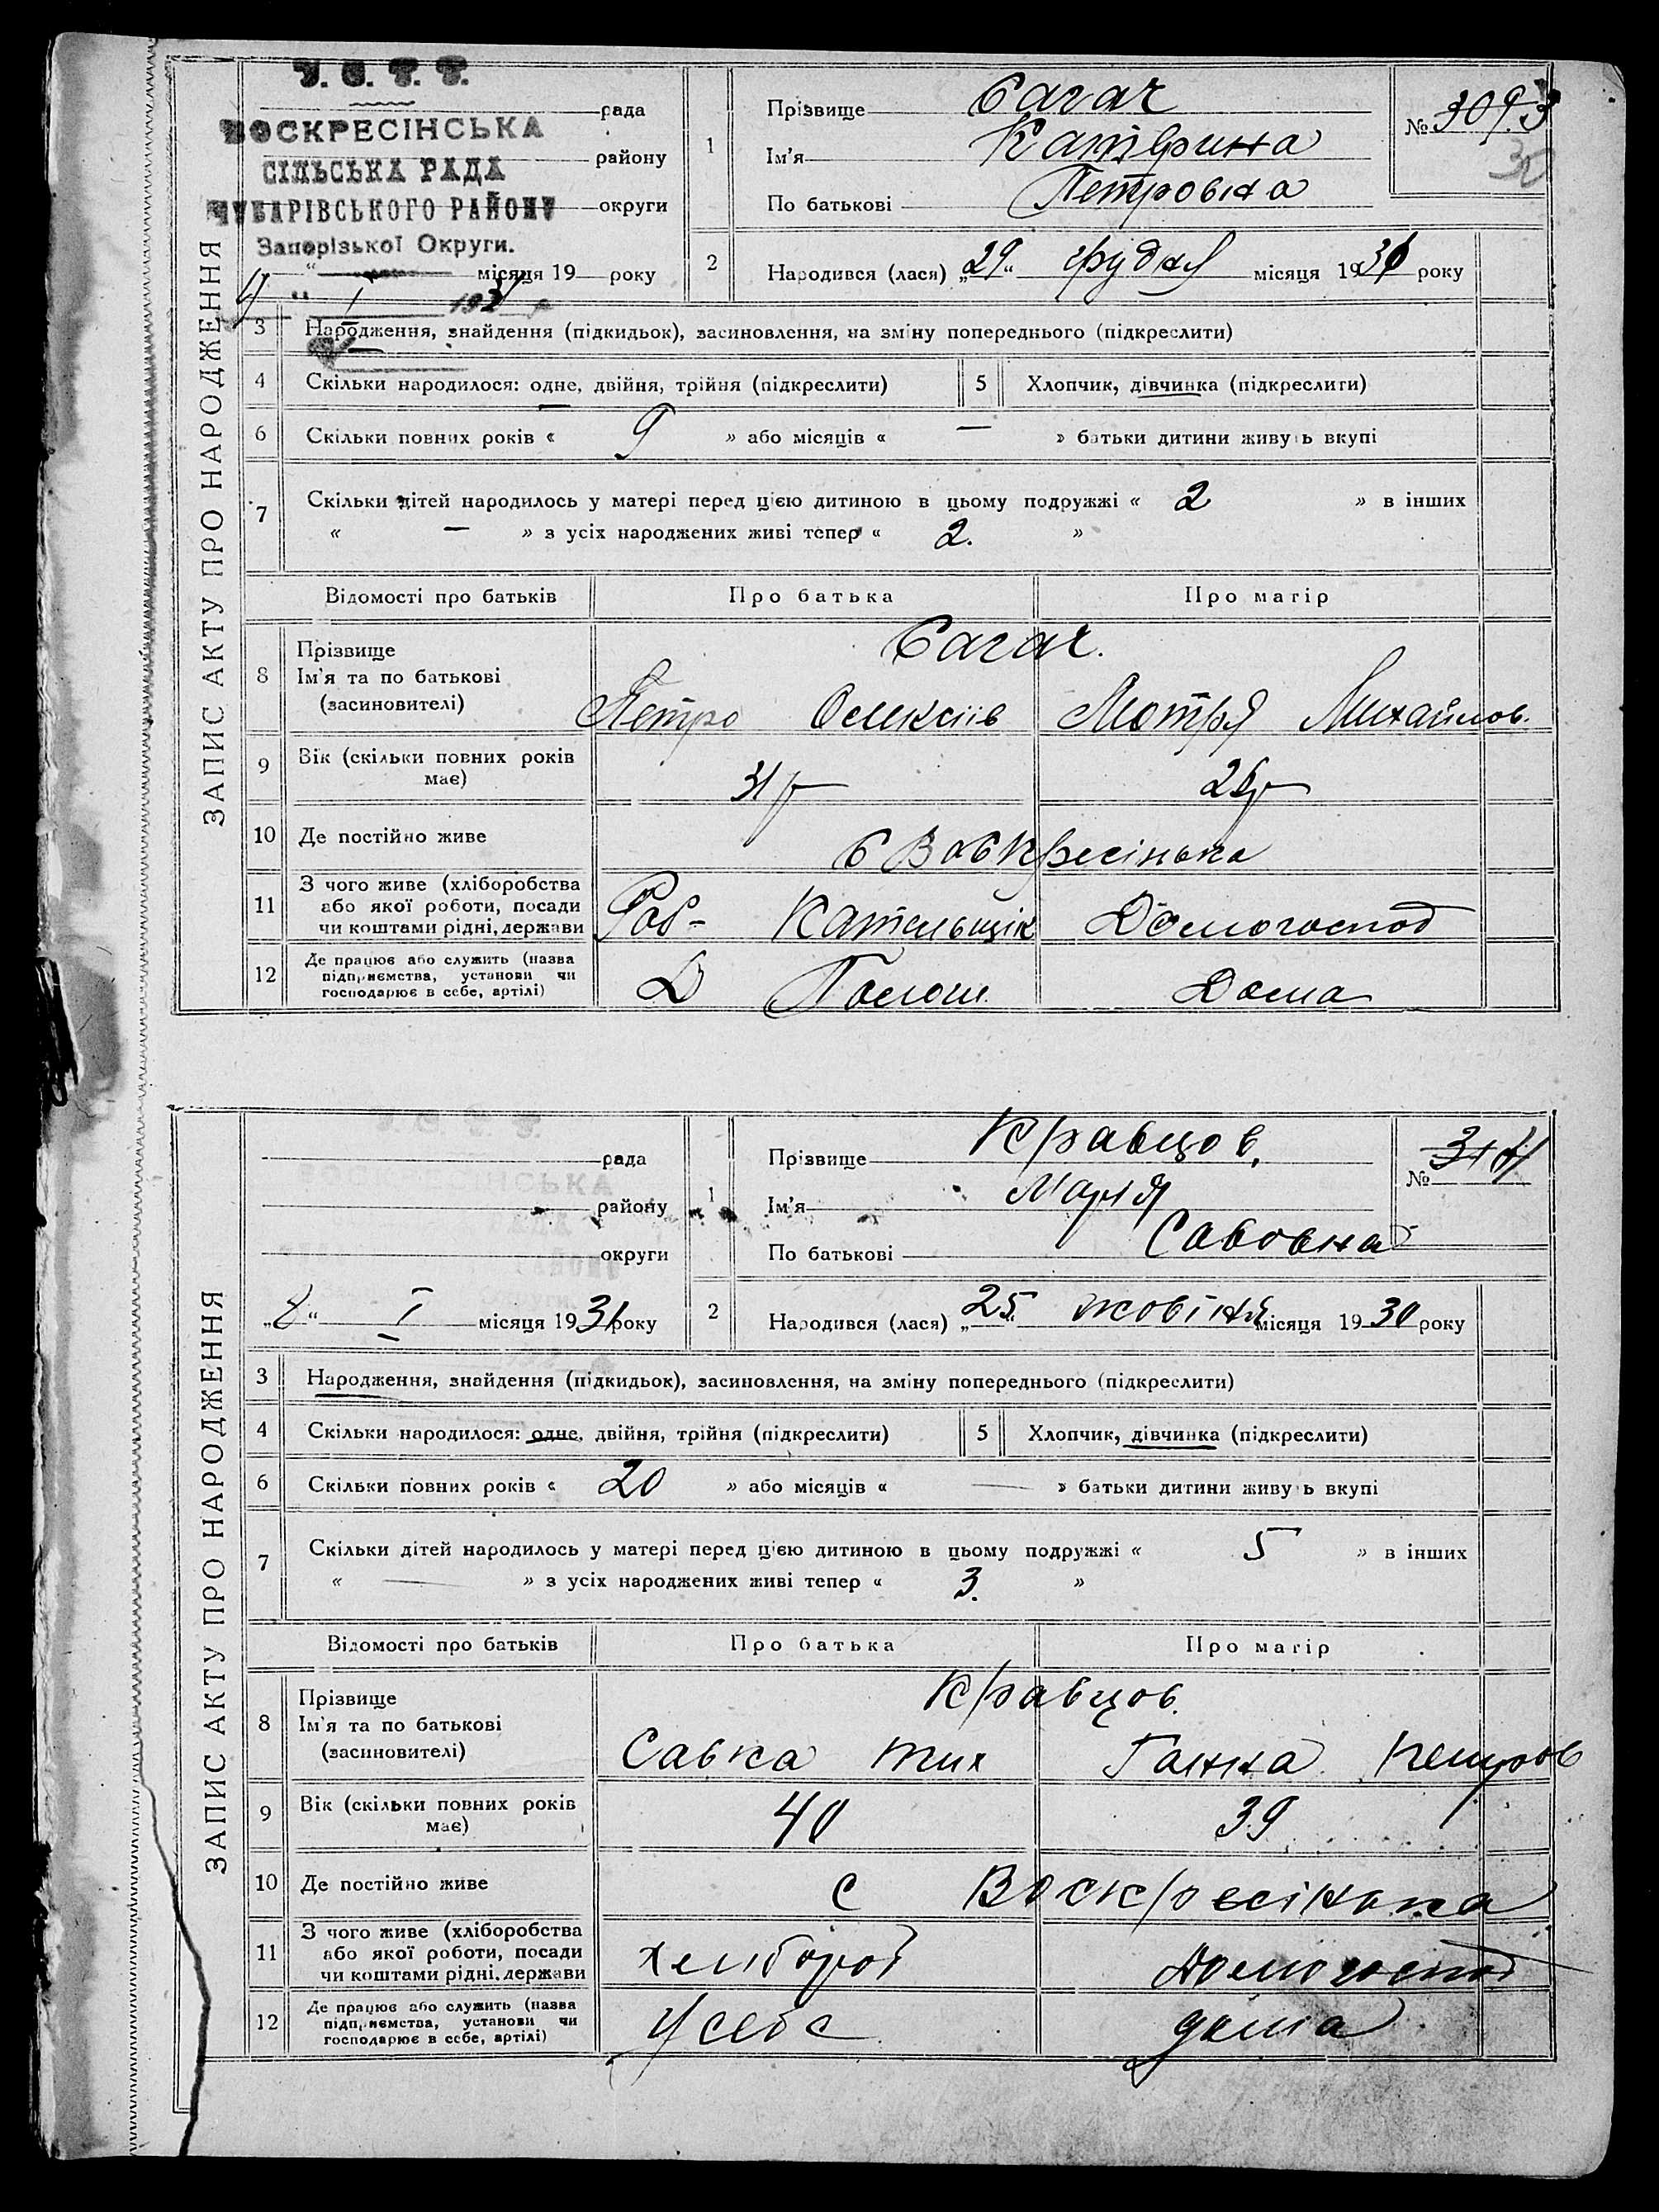 У. С. Р. Р.
рада
ВОСКРЕСІНСЬКА
району
СІЛЬСЬКА РАДА
округи
ЧУБАРІВСЬКОГО РАЙОНУ
Запорізької Округи.
місяця 19 року
4 I 1931 р
ЗАПИС АКТУ ПРО НАРОДЖЕННЯ
1 Прізвище Сагач
Ім'я Катерина
По батькові Петровна
№ 309 3
2 Народився (лася) „29“ грудня місяця 1930 року
3 Народження, знайдення (підкидьок), засиновлення, на зміну попереднього (підкреслити)
4 Скільки народилося: одне, двійня, трійня (підкреслити) 5 Хлопчик, дівчинка (підкреслити)
6 Скільки повних років « 9 » або місяців « — » батьки дитини живуть вкупі
7 Скільки дітей народилось у матері перед цією дитиною в цьому подружжі « 2 » в інших
« — » з усіх народжених живі тепер « 2. »
Відомості про батьків Про батька Про матір
8 Прізвище Сагач.
Ім'я та по батькові
(засиновителі) Петро Олексіїв Мотря Михайлов.
9 Вік (скільки повних років має) 31 р 26 р
10 Де постійно живе С Воскресінька
11 З чого живе (хліборобства або якої роботи, посади чи коштами рідні, держави Роб- Катальщік Домогоспод
12 Де працює або служить (назва підприємства, установи чи господарює в себе, артілі) Дома
рада
району
округи
„8“ I місяця 1931 року
ЗАПИС АКТУ ПРО НАРОДЖЕННЯ
1 Прізвище Кравцов,
Ім'я Марія
По батькові Савовна
№ 311 4
2 Народився (лася) „25“ жовтня місяця 1930 року
3 Народження, знайдення (підкидьок), засиновлення, на зміну попереднього (підкреслити)
4 Скільки народилося: одне, двійня, трійня (підкреслити) 5 Хлопчик, дівчинка (підкреслити)
6 Скільки повних років « 20 » або місяців « — » батьки дитини живуть вкупі
7 Скільки дітей народилось у матері перед цією дитиною в цьому подружжі « 5 » в інших
« — » з усіх народжених живі тепер « 3. »
Відомості про батьків Про батька Про матір
8 Прізвище Кравцов.
Ім'я та по батькові
(засиновителі) Савка Тих Ганна Петров
9 Вік (скільки повних років має) 40 39
10 Де постійно живе С Воскресінька
11 З чого живе (хліборобства або якої роботи, посади чи коштами рідні, держави хлібороб Домогоспод
12 Де працює або служить (назва підприємства, установи чи господарює в себе, артілі) У себе дома